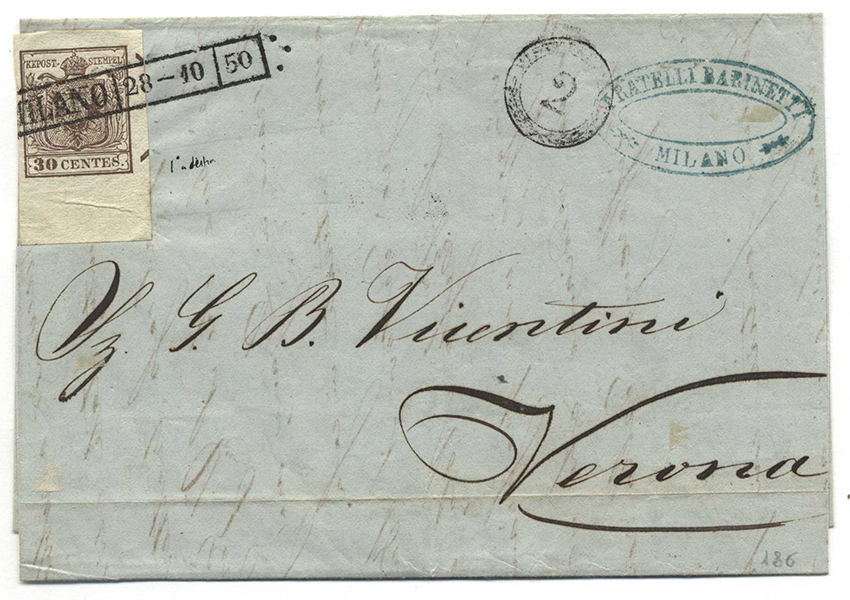 KKPOST-STEMPEL
MILANO 28-10 50
30 CENTES.
2
FRATELLI BARINETTI
MILANO
Sg. G. B. Vicentini
Verona
186